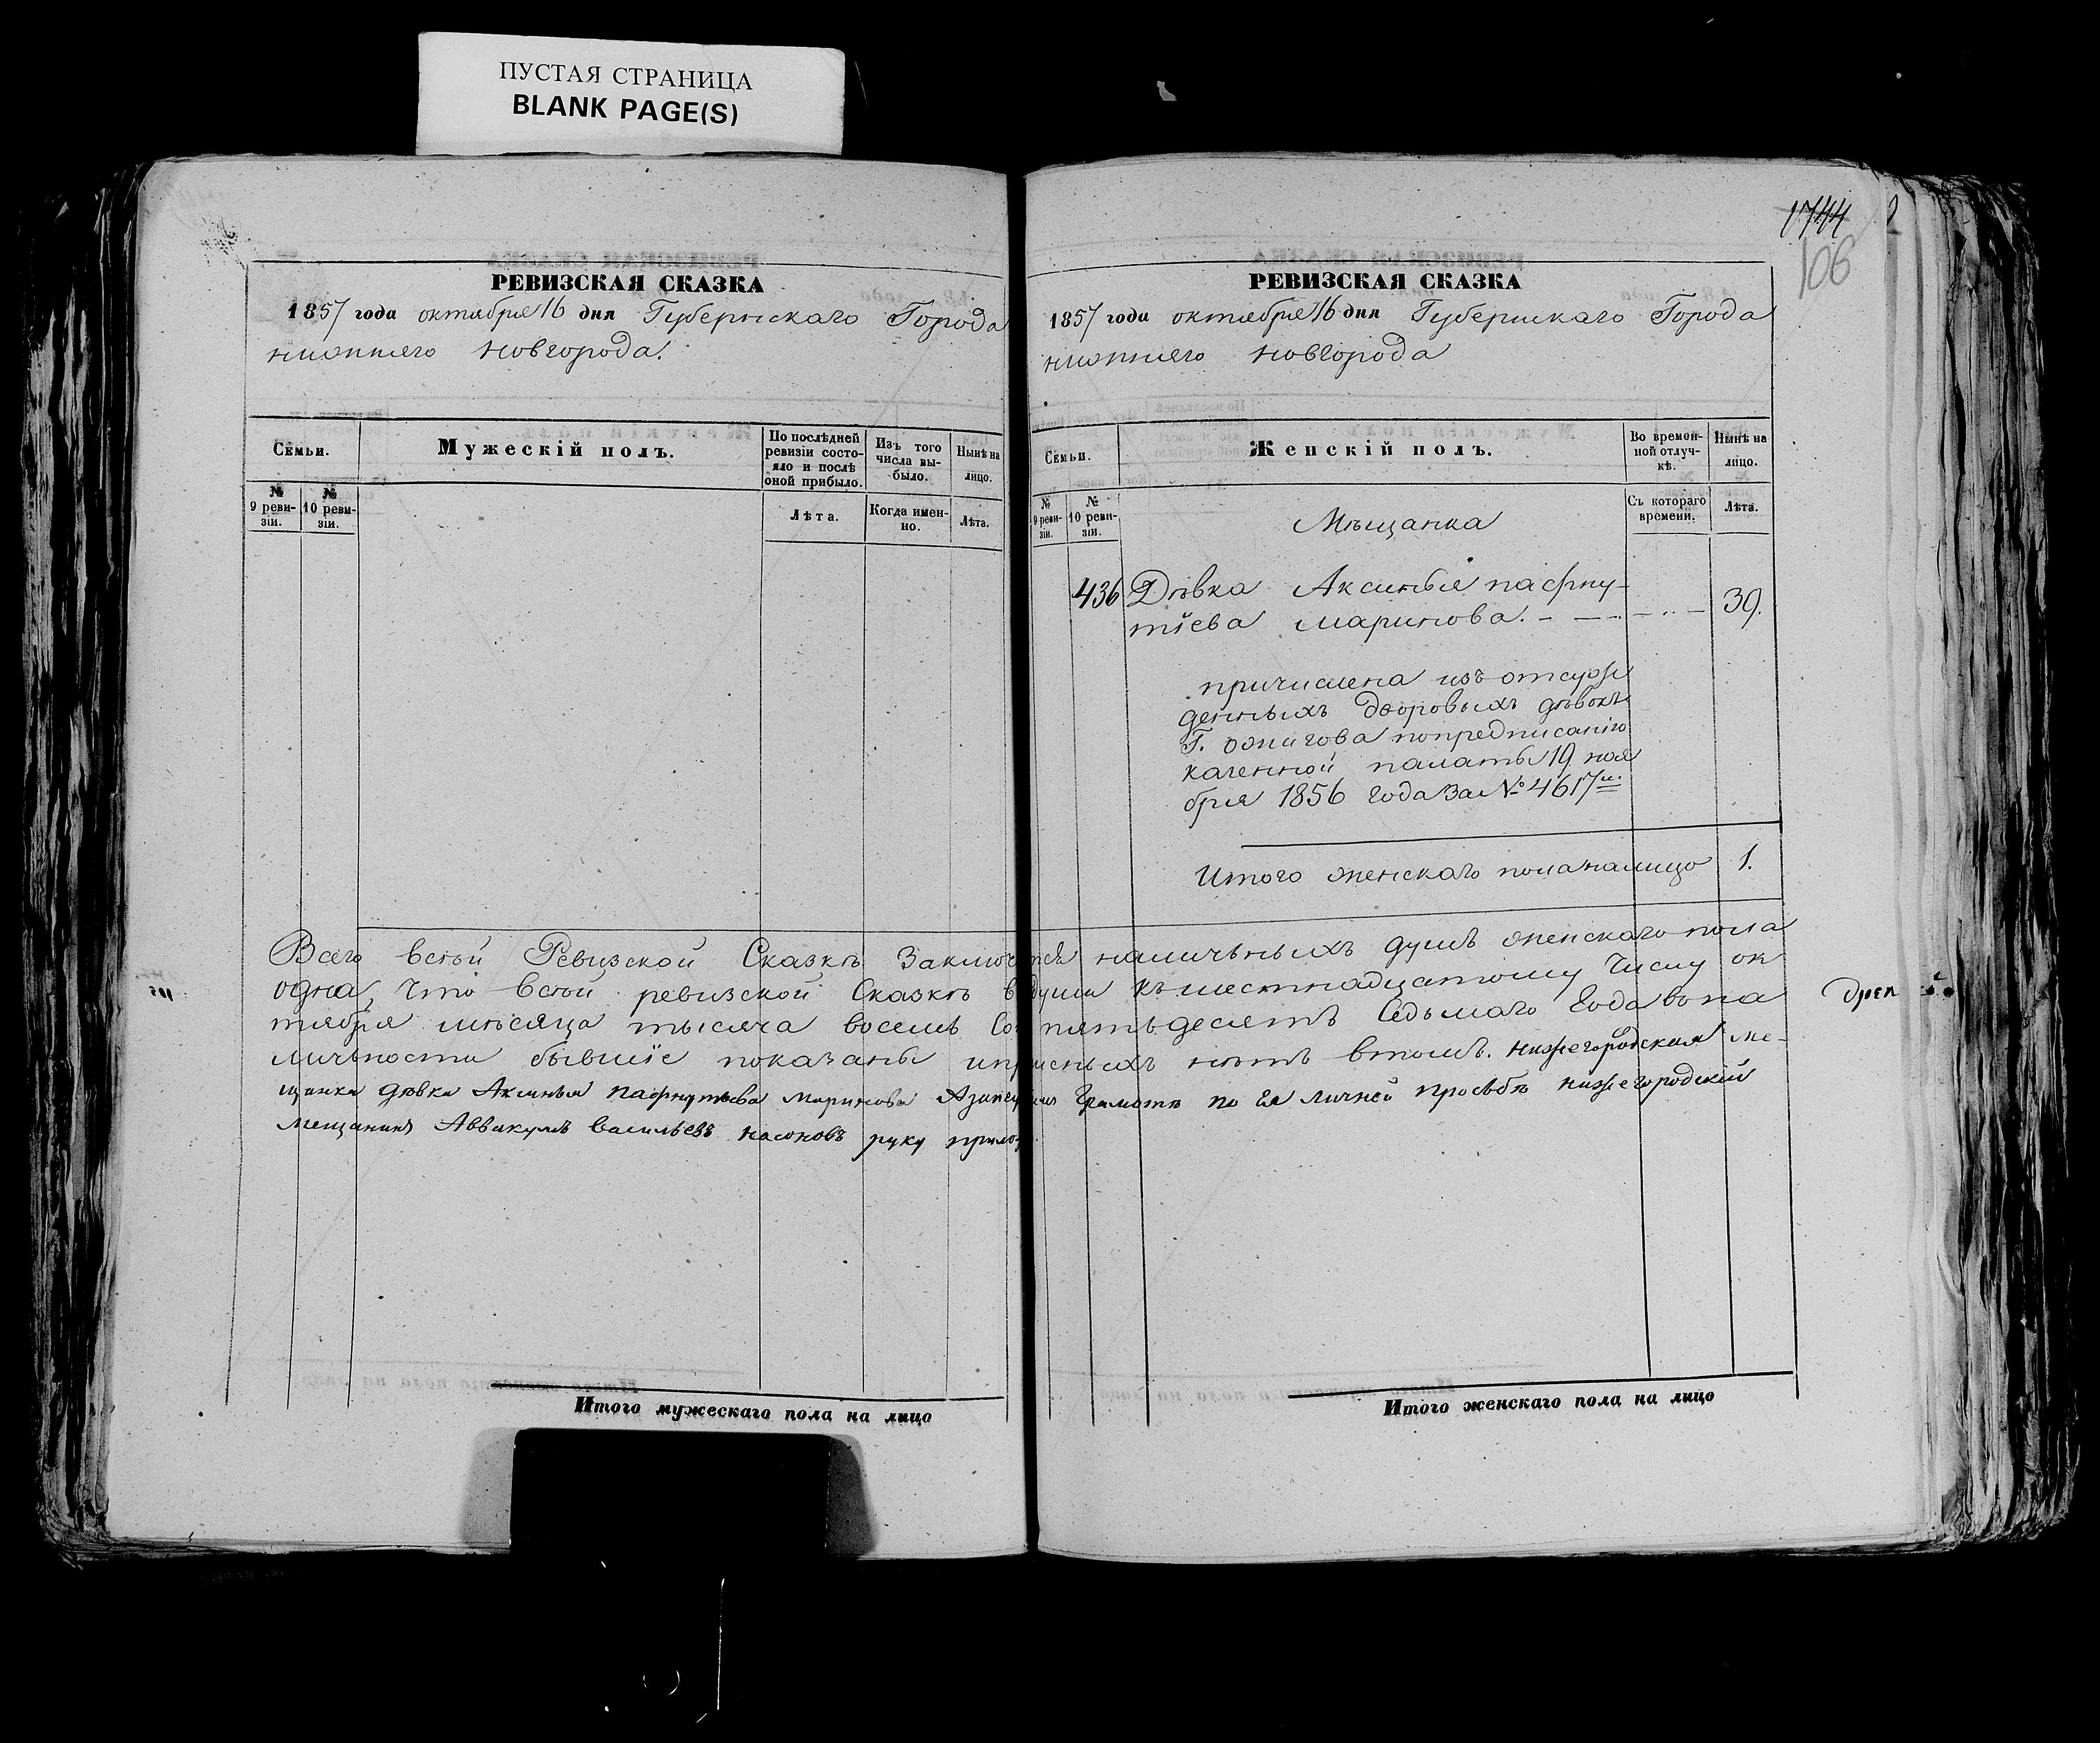 ПУСТАЯ СТРАНИЦА
BLANK PAGE(S)
РЕВИЗСКАЯ СКАЗКА
1857 года октября 16 дня Губернскаго Города
нижняго новгорода.
Семьи.
Мужескій полъ.
По послѣдней ревизіи состояло и послѣ оной прибыло.
Изъ того числа выбыло.
Нынѣ на лицо.
№ 9 ревизіи.
№ 10 ревизіи.
Лѣта.
Когда именно.
Лѣта.
Итого мужескаго пола на лицо
1744
106
РЕВИЗСКАЯ СКАЗКА
1857 года октября 16 дня Губернскаго Города
нижняго новгорода
Семьи.
Женскій полъ.
Во временной отлучкѣ.
Нынѣ на лицо.
№ 9 ревизіи.
№ 10 ревизіи.
Съ котораго времени.
Лѣта.
Мѣщанка
436 Дѣвка Аксинья пафну-
тіева маринова. 39.
причислена изъ отсуж
денныхъ дворовыхъ дѣвокъ
Г. ожигова попредписанію
казенной палаты 19 ноя
бря 1856 года За № 4617м.
Итого женскаго поланалицо 1.
Всего всѣй Ревизской Сказкѣ Заключ тся наличьныхъ душъ женскаго пола
одна, Что всѣй ревизской Сказкѣ в души къшестнадцатому Числу ок
тября мѣсяца тысяча восемь Со пятьдесятъ Седьмаго Года вьна
личьности бывшіе показаны ип исныхъ нѣтъ втомъ. нижегородская ме-
щанка дѣвка Аксинья пафнутьева Маринова Азанеу грамотѣ по Ея личной прозьбѣ нижегородскій
мещанинъ Аввакумъ васильевъ насоновъ руку прилож
Итого женскаго пола на лицо